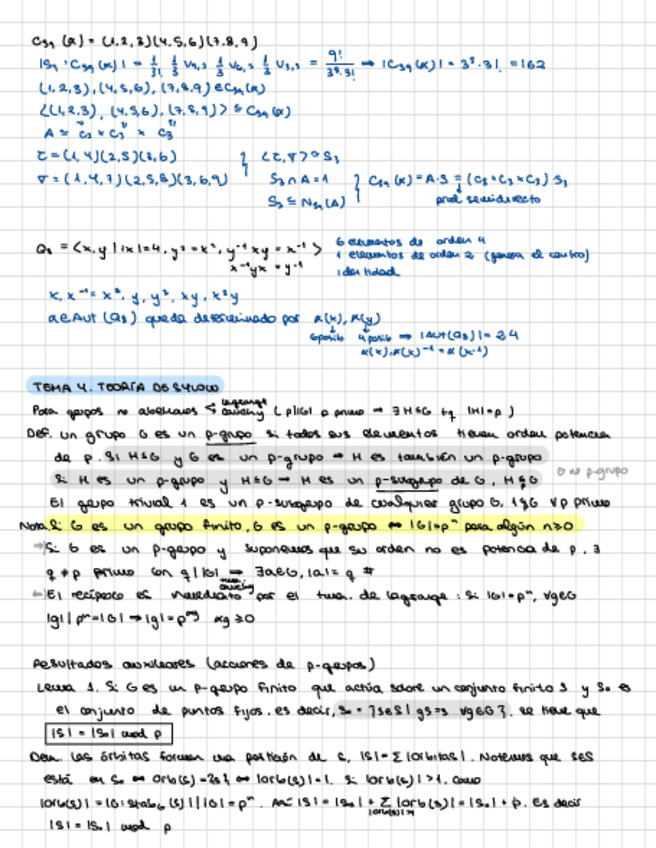 C_S9 (α) = (1,2,3)(4,5,6)(7,8,9)
|S9 : C_S9 (α)| = 1/3! 1/3 V9,3 1/3 V6,3 1/3 V3,3 = 9!/3³·3! → |C_S9(α)| = 3³·3! = 162
(1,2,3), (4,5,6), (7,8,9) ∈ C_S9(α)
⟨(1,2,3), (4,5,6), (7,8,9)⟩ ≤ C_S9(α)
A ≃ C3 × C3 × C3
τ = (1,4)(2,5)(3,6)
σ = (1,4,7)(2,5,8)(3,6,9)
⟨τ,σ⟩ ≃ S3
S3 ∩ A = 1
S3 ≤ N_S9(A)
C_S9(α) = A·S = (C3×C3×C3) S3
prod semidirecto
Q8 = ⟨x,y | |x|=4, y² = x², y⁻¹xy = x⁻¹⟩
x⁻¹yx = y⁻¹
6 elementos de orden 4
1 elementos de orden 2 (genera el centro)
identidad
x, x⁻¹ = x³, y, y³, xy, x³y
α∈Aut(Q8) queda determinado por α(x), α(y)
6 posib 4 posib → |Aut(Q8)| = 24
α(x), α(x)⁻¹ = α(x⁻¹)
TEMA 4. TEORÍA DE SYLOW
Para grupos no abelianos < lagrange cauchy ( p||G| p primo → ∃ H≤G tq |H|=p )
Def. un grupo G es un p-grupo si todos sus elementos tienen orden potencia
de p. Si H≤G y G es un p-grupo → H es también un p-grupo
Si H es un p-grupo y H≤G → H es un p-subgrupo de G, H≤G
G no p-grupo
El grupo trivial 1 es un p-subgrupo de cualquier grupo G, 1≤G ∀p primo
Nota. Si G es un grupo finito, G es un p-grupo ↔ |G|=pⁿ para algún n≥0
→ Si G es un p-grupo y suponemos que su orden no es potencia de p, ∃
q ≠ p primo con q||G| → ∃a∈G, |a| = q #
tma. cauchy
← El recíproco es inmediato por el tma. de lagrange : Si |G|=pⁿ, ∀g∈G
|g| | pⁿ=|G| → |g| = p^αg αg ≥0
Resultados auxiliares (acciones de p-grupos)
Lema 1. Si G es un p-grupo finito que actúa sobre un conjunto finito S y S₀ es
el conjunto de puntos fijos, es decir, S₀ = {s∈S | gs=s ∀g∈G}, se tiene que
|S| ≡ |S₀| mod p
Dem. Las órbitas forman una partición de S, |S| = Σ|orbitas|. Notemos que s∈S
está en S₀ ↔ Orb(s)={s} ↔ |orb(s)|=1. Si |orb(s)|>1, como
|orb(s)| = |G : stab_G (s)| | |G| = pⁿ. Así |S| = |S₀| + Σ |orb(s)| = |S₀| + ṗ. Es decir
|orb(s)|>1
|S| ≡ |S₀| mod p